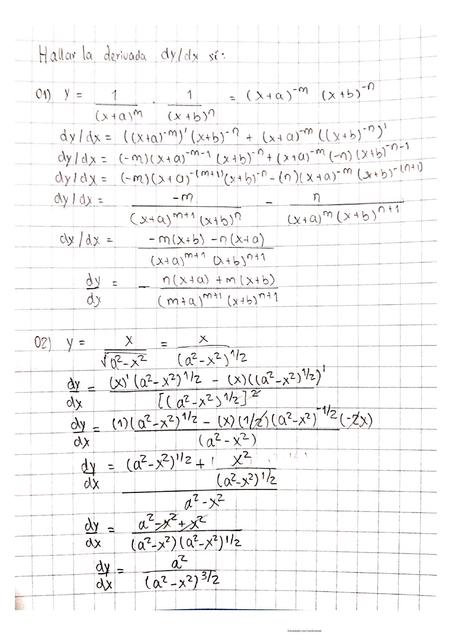 Hallar la derivada dy/dx si:
01) y = 1/(x+a)^m · 1/(x+b)^n = (x+a)^-m (x+b)^-n
dy/dx = ((x+a)^-m)' (x+b)^-n + (x+a)^-m ((x+b)^-n)'
dy/dx = (-m)(x+a)^-m-1 (x+b)^-n + (x+a)^-m (-n)(x+b)^-n-1
dy/dx = (-m)(x+a)^-(m+1) (x+b)^-n - (n)(x+a)^-m (x+b)^-(n+1)
dy/dx = -m/((x+a)^m+1 (x+b)^n) - n/((x+a)^m (x+b)^n+1)
dy/dx = (-m(x+b) - n(x+a))/((x+a)^m+1 (x+b)^n+1)
dy/dx = - (n(x+a) + m(x+b))/((m+a)^m+1 (x+b)^n+1)
02) y = x/√(a²-x²) = x/(a²-x²)^1/2
dy/dx = ((x)' (a²-x²)^1/2 - (x)((a²-x²)^1/2)')/[(a²-x²)^1/2]²
dy/dx = ((1)(a²-x²)^1/2 - (x)(1/2)(a²-x²)^-1/2 (-2x))/(a²-x²)
dy/dx = ((a²-x²)^1/2 + x²/(a²-x²)^1/2)/(a²-x²)
dy/dx = (a²-x²+x²)/((a²-x²)(a²-x²)^1/2)
dy/dx = a²/(a²-x²)^3/2